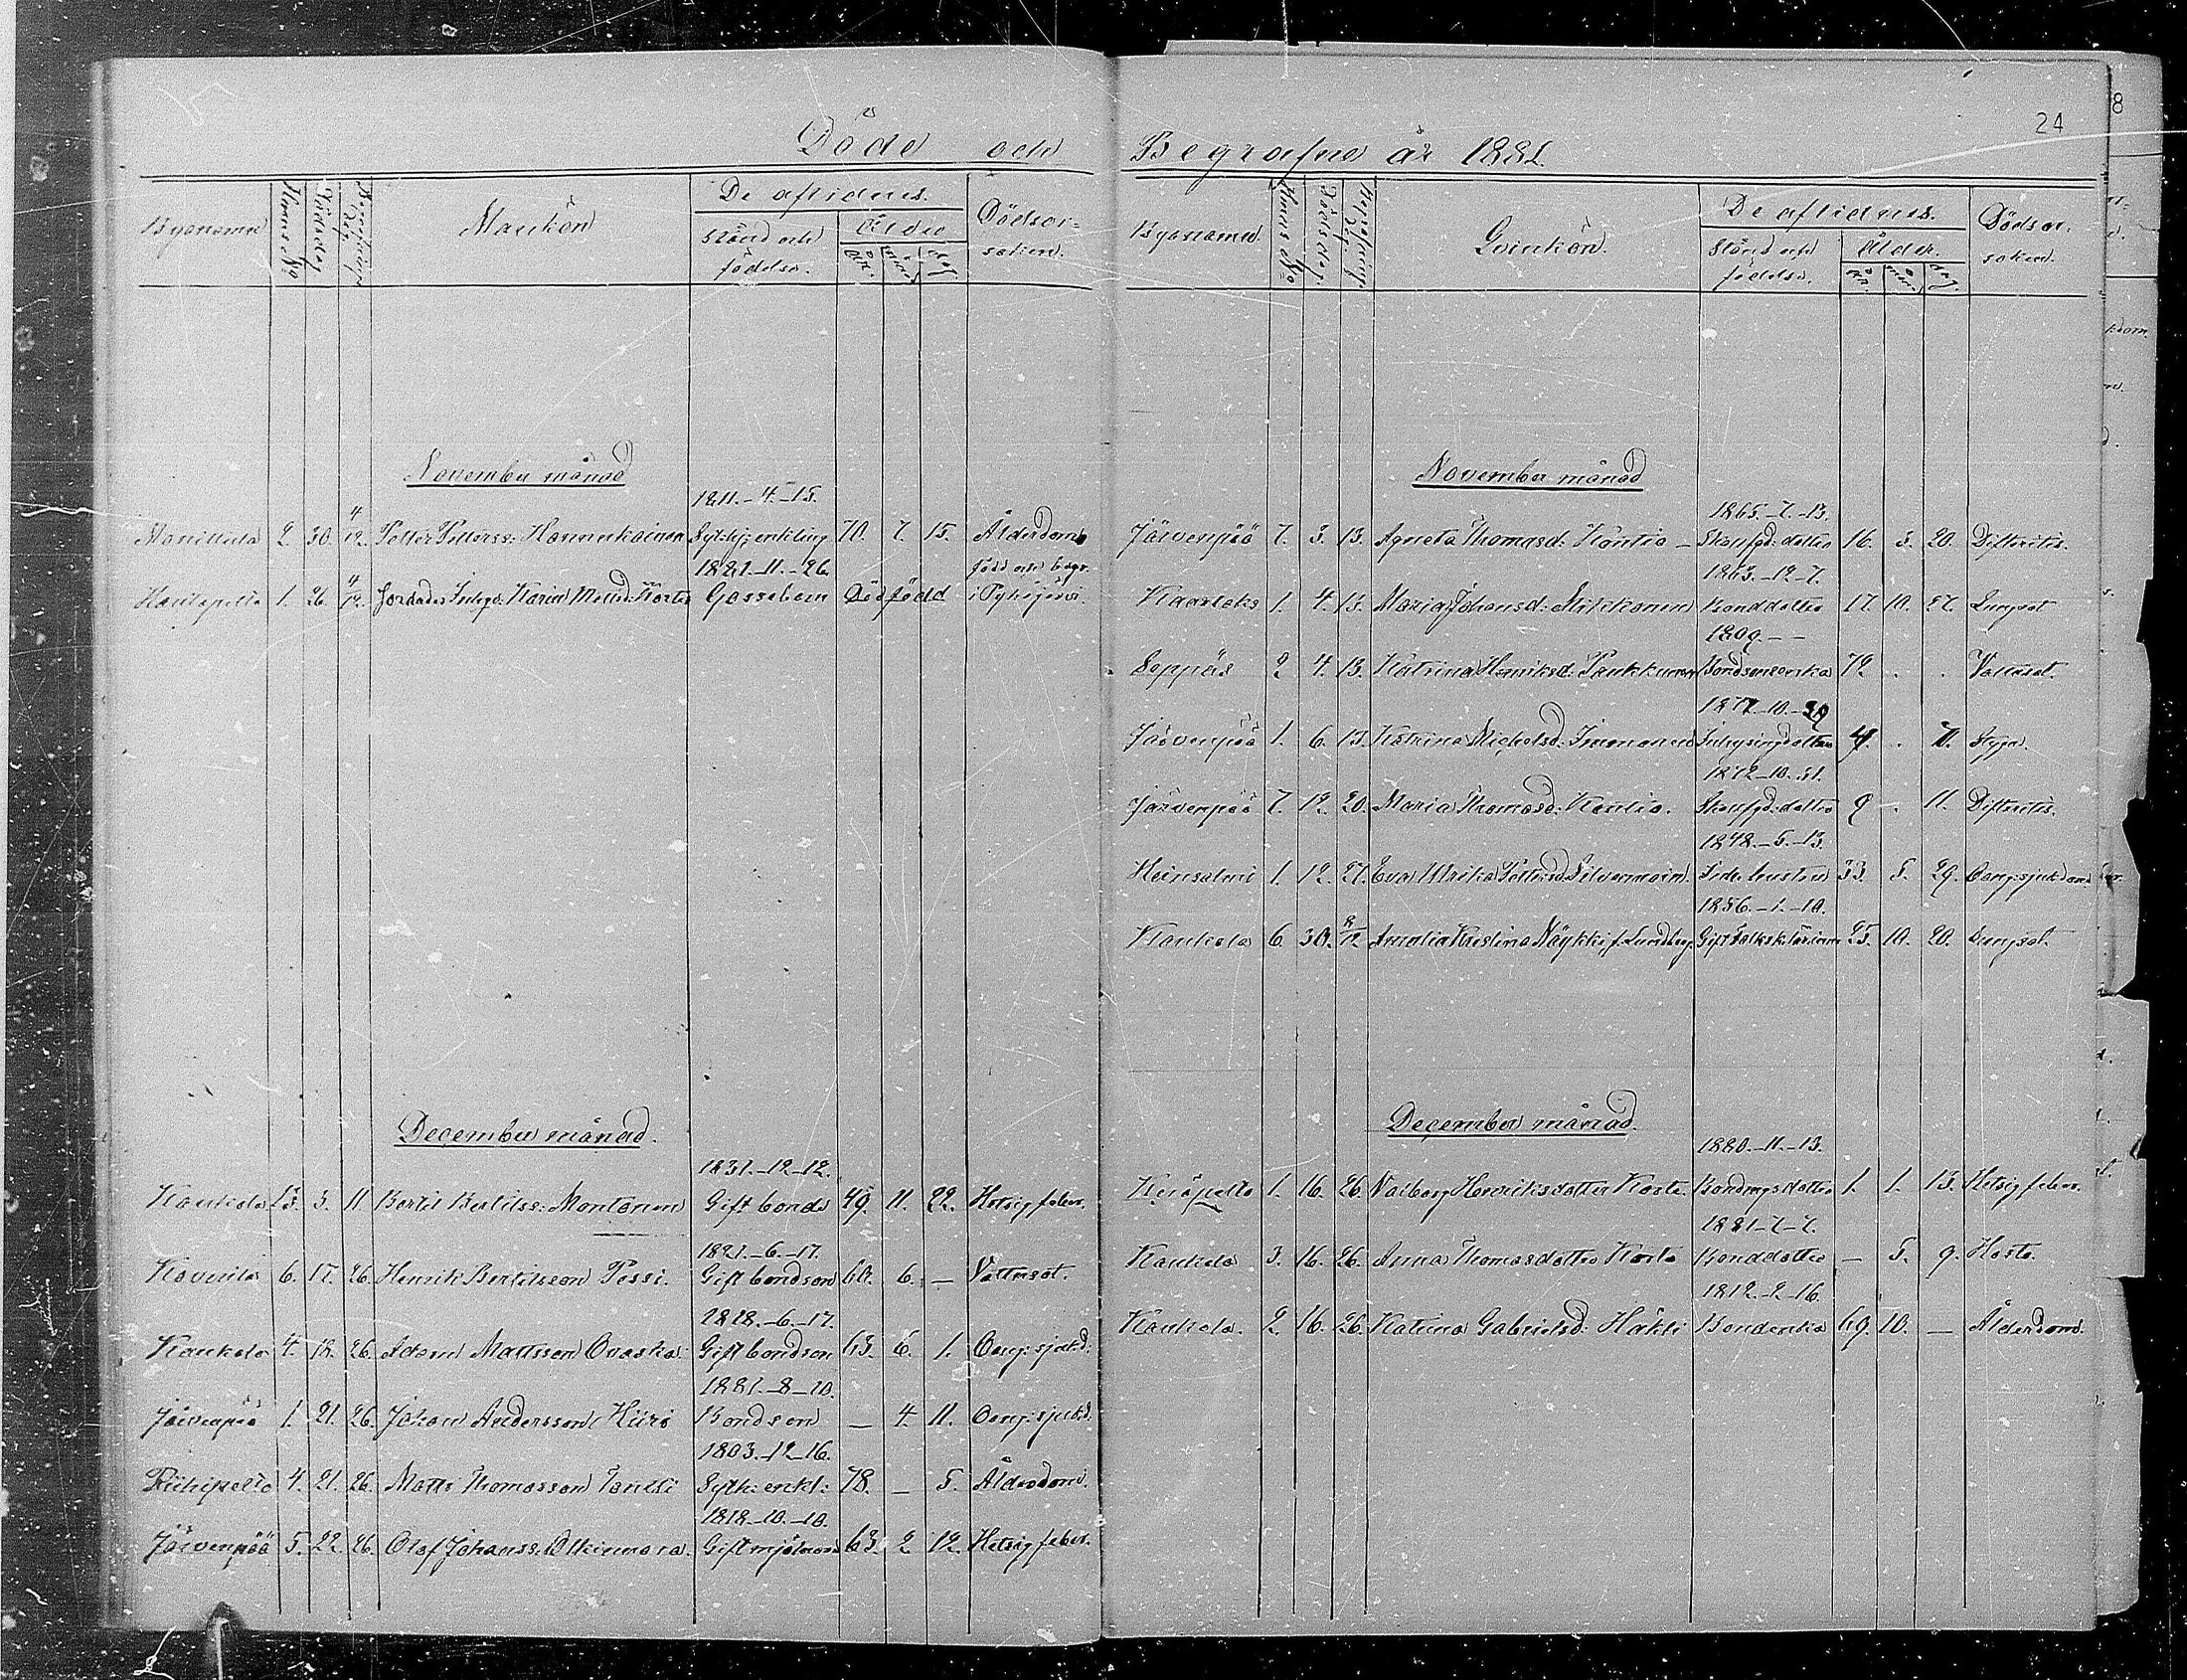 24
Döde och Begrafne år 1881.
Bynamn Hemm. No Dödsdag Begrafnings dag. Mankön De aflidnes. Stånd och födelse. Ålder år. mån. dag. Dödsorsaken.
November månad
1811.-4.-15.
2. 30. 4/12. Petter Petterss: Hannukainen enkling 70. 7. 15. Ålderdom
1881.-11.-26. född och begr.
Hautapelto 1. 26. 4/12. Jordades Karin Gossebarn Dödfödd i Pyhäjärvi
December månad.
1831.-12.-12.
Kaukola 13. 3. 11. Bertil Bertilss: Montonen Gift bonde 49. 11. 22. Hetsig feber.
1821.-6.-17.
Koverila 6. 17. 26. Henrik Bertilsson Pessi. Gift bondson 60. 6. — Vattusot.
1818.-6.-17.
Kaukola 4. 18. 26. Adam Mattsson Ovaska. Gift bondson 63. 6. 1. Oang: sjukd:
1881.-8-10.
Järvenpää 1. 21. 26. Johan Andersson Hiiri Bondson — 4. 11. Oang: sjukd:
1803.-12-16.
Riihipelto 4. 21. 26. Matts Thomasson Tanski Sytn: enkl: 78. — 5. Ålderdom.
1818.-10.-10.
Järvenpää 5. 22. 26. Olof Johanss: Gift mjölnare 63. 2 12. Hetsig feber.
Bynamn. Hemm. No Dödsdag. Begrafnings dag. Qvinkön. De aflidnes. Stånd och födelse. Ålder. år. mån. dag. Dödsorsaken.
November månad
1865.-7.-13.
Järvenpää 7. 3. 13. Agneta Thomasd: Kontio — dotter 16. 3. 20. Difteritis.
1863.-12-7.
Kaarlaks 1. 4. 13. Maria Johansd: Mikkonen Bonddotter 17. 10. 27. Lungsot
1809.- -
Seppäs 2 4. 13. Katrina Henriksd: Paukkunen Bondsonsenka 72 . . Vattusot.
1877.-10.-30
Järvenpää 1. 6. 13. Katrina Michelsd: Immonen 4. . 7.
1872-10.-31.
Järvenpää 7. 12. 20. Maria Thomasd: Kontio. dotter 9 - 11. Difteritis.
1848.-5.-13.
Heinsalmi 1. 12. 27. Eva Ulrika Petterd Silvermoin. 33. 5. 29. Oang: sjukdom
1856.-1.-10.
Kaukola 6. 30. 8/12 Amalia Kristina Näykki f. Lundberg. Gift 25. 10. 20. Lungsot
December månad.
1880.-11.-13.
Keräpelto 1. 16. 26. Valborg Henriksdotter Koste. dotter 1. 1. 13. Hetsig feber.
1881-7-7.
Kaukola 3. 16. 26. Anna Thomasdotter Koste Bonddotter — 5. 9. Hosta.
1812.-2-16.
Kaukola. 2. 16. 26. Katrina Gabrielsd: Häkli Bondenka 69. 10. — Ålderdom.